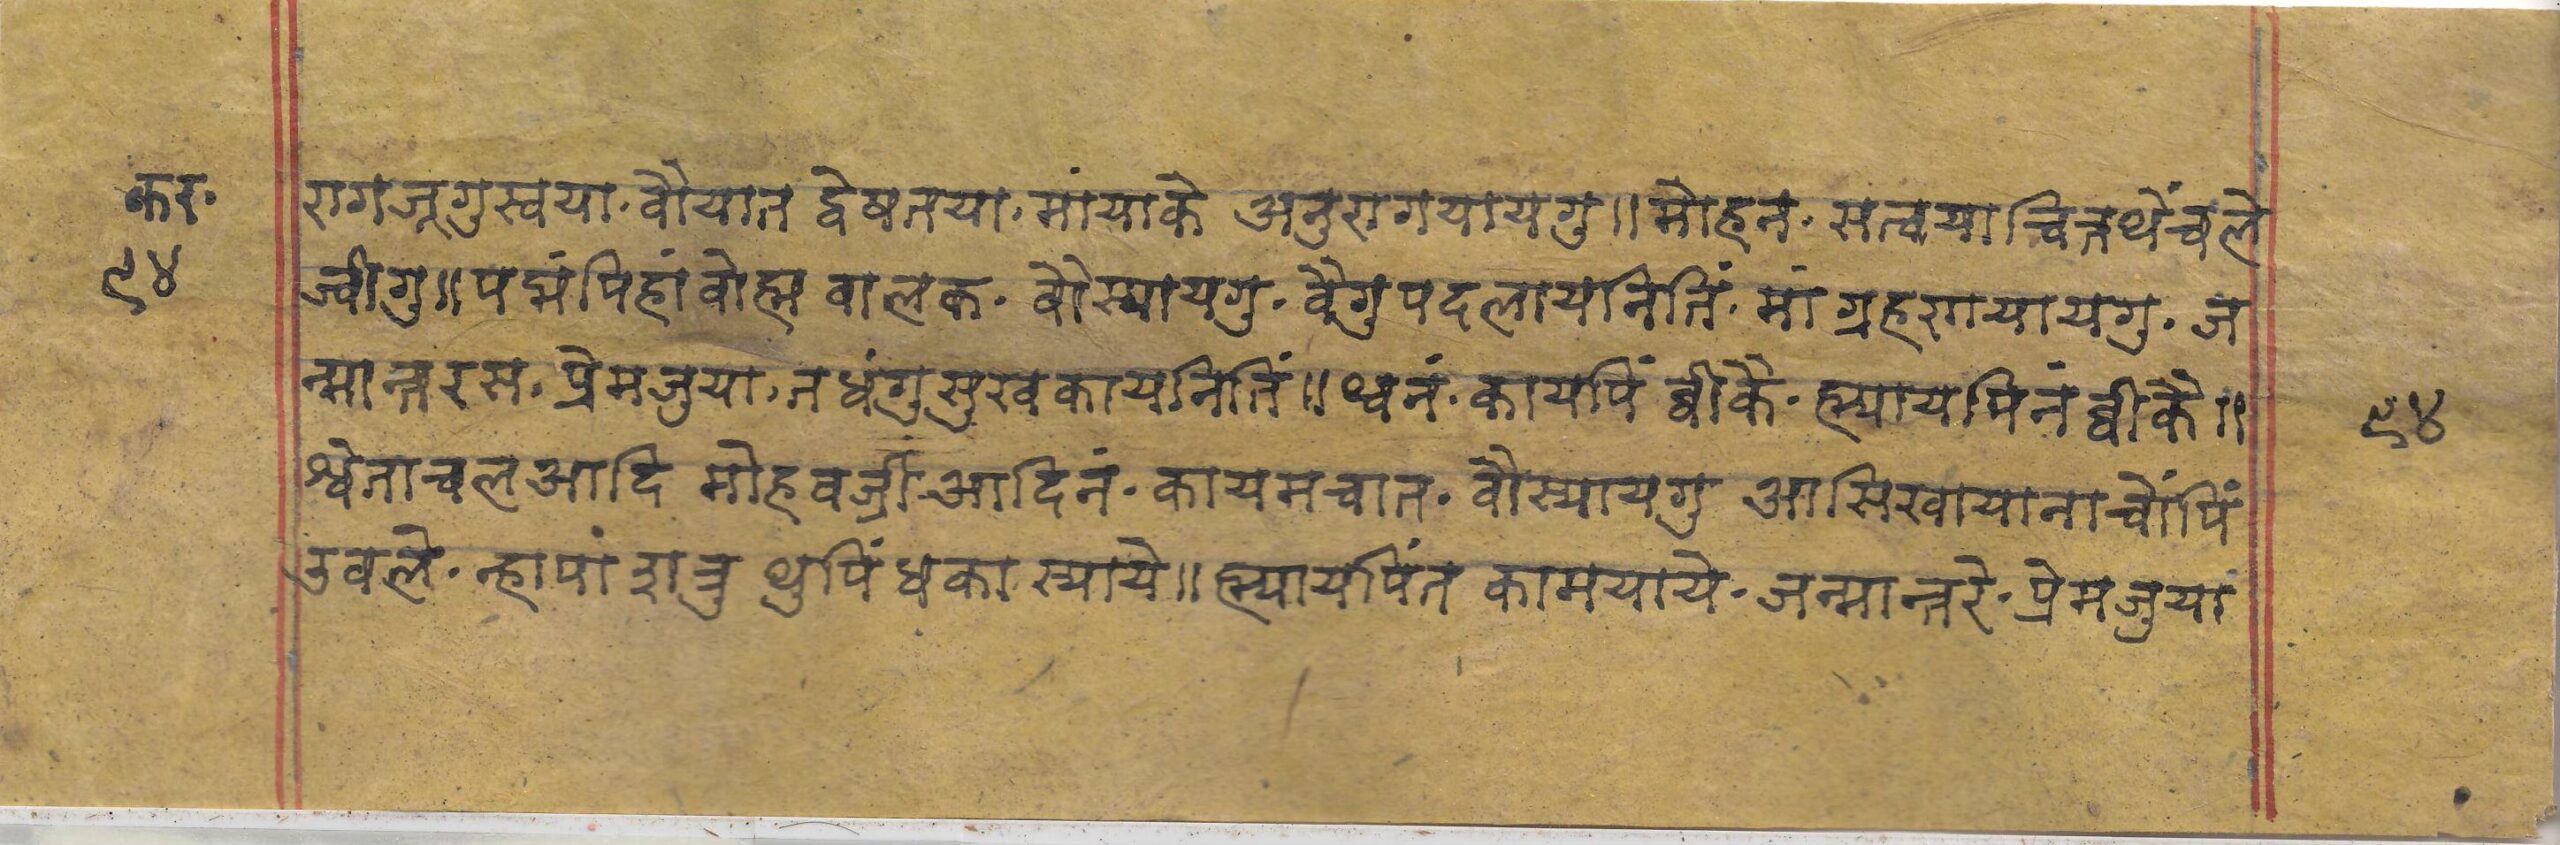 कर· रागजूगुस्वया· वौयात द्वेषतया· मांयाके अनुरागयायगु॥ मोहन· सत्वया चित्तथेंचले
९४ ज्वीगु॥ पद्मंपिहांवोह्म वालक· वौस्यायगु· वैगुपदलायनितिं· मां ग्रहरागयायगु· ज
न्मान्तरस· प्रेमजुया· तधंगुसुखकायनितिं॥ थ्वनं· कायपिं द्वीकै· ह्म्यायपिनं द्वीकै॥ ९४
श्वेताचल आदि मोहवज्री आदिनं· कायमचात· वौस्यायगु आसिखायानाचोंपिं
उवले· न्हापां शत्रु थुपिं धका स्याये॥ ह्म्यायपिंत कामयाये· जन्मान्तरे· प्रेमजुया